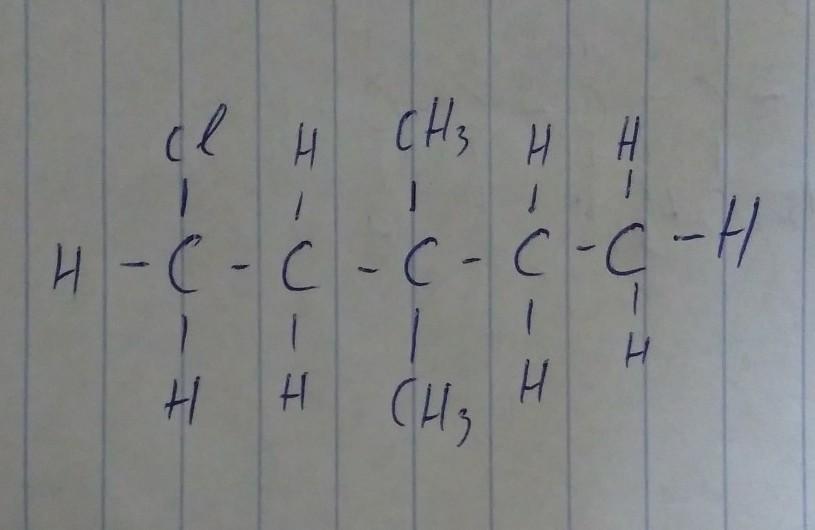 Cl H CH3 H H
| | | | |
H - C - C - C - C - C - H
| | | | |
H H CH3 H H